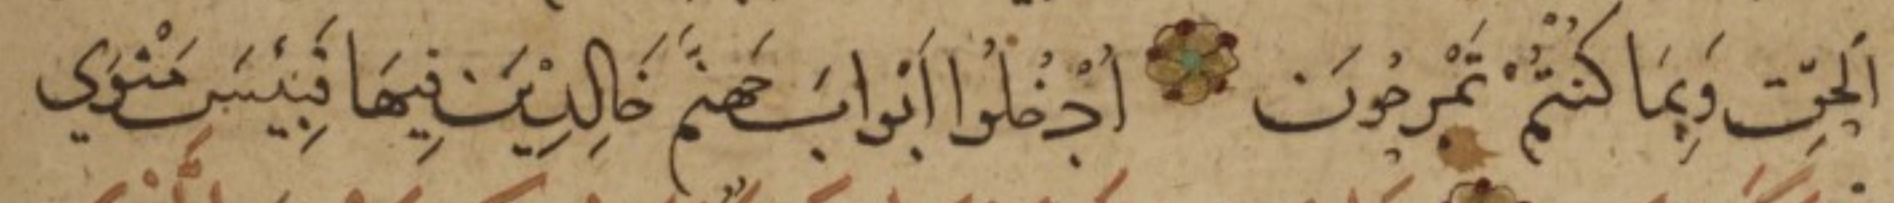 اَلْحَقِّ وَبِمَا كُنْتُمْ تَمْرَحُونَ اُدْخُلُوا اَبْوابَ جَهَنَّمَ خَالِدِيْنَ فِيهَا فَبِئْسَ مَثْوَي